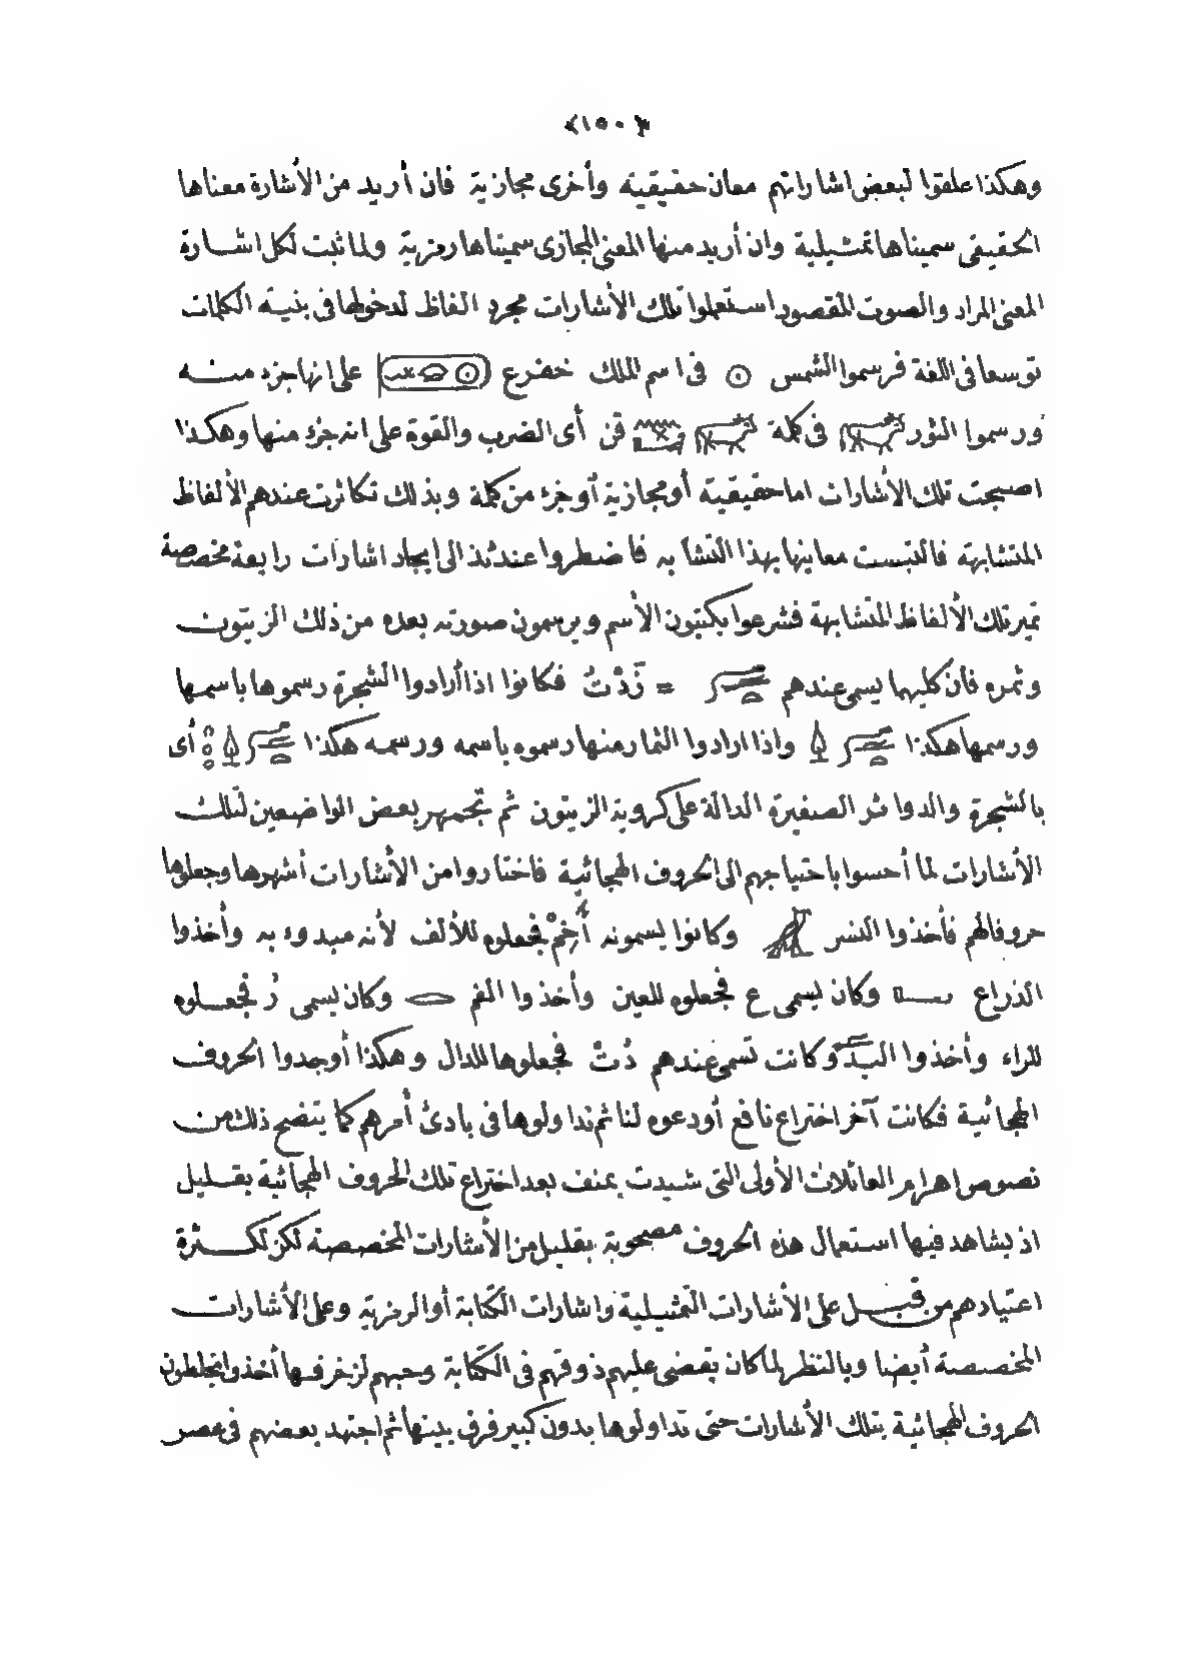 ﴿١٥٠﴾
وهكذا علقوا لبعض اشاراتهم معان حقيقية وأخرى مجازية فان أريد من الأشارة معناها
الحقيقى سميناها تمثيلية وان أريد منها المعنى المجازى سميناها رمزية ولما ثبت لكل اشارة
المعنى المراد والصوت المقصود استعملوا تلك الأشارات مجرد الفاظ لدخولها فى بنية الكلمات
توسعا فى اللغة فرسموا الشمس فى اسم الملك خفرع على انها جزء منه
ورسموا الثور فى كلة قن أى الضرب والقوة على انه جزء منها وهكذا
اصبحت تلك الأشارات اما حقيقية أو مجازية أو جزء من كلة وبذلك تكاثرت عندهم الألفاظ
المتشابهة فالتبست معانيها بهذا التشابه فاضطروا عندئذ الى ايجاد اشارات رابعة مخصصة
تميز تلك الألفاظ المتشابهة فشرعوا يكتبون الأسم ويرسمون صورته بعده من ذلك الزيتون
وثمره فان كليهما يسمى عندهم = زَدْتُ فكانوا اذا أرادوا الشجرة رسموها باسمها
ورسمها هكذا واذا ارادوا الثمار منها رسموه باسمه ورسمه هكذا أى
بالشجرة والدوائر الصغيرة الدالة على كروية الزيتون ثم تجمهر بعض الواضعين لتلك
الأشارات لما أحسوا باحتياجهم الى الحروف الهجائية فاختاروا من الأشارات أشهرها وجعلوها
حروفا لهم فأخذوا النسر وكانوا يسمونه أخم فجعلوه للألف لأنه مبدوء به وأخذوا
الذراع وكان يسمى ع فجعلوه للعين وأخذوا الفم وكان يسمى رُ فجعلوه
للراء وأخذوا اليد وكانت تسمى عندهم دُتْ فجعلوها للدال وهكذا أوجدوا الحروف
الهجائية فكانت آخر اختراع نافع أودعوه لنا ثم تداولوها فى بادئ أمرهم كما يتضح ذلك من
نصوص اهرام العائلات الأولى التى شيدت بمنف بعد اختراع تلك الحروف الهجائية بقليل
اذ يشاهد فيها استعمال هذه الحروف مصحوبة بقليل من الأشارات المخصصة لكن لكثرة
اعتيادهم من قبل على الأشارات التمثيلية واشارات الكتابة أو الرمزية وعلى الأشارات
المخصصة أيضا وبالنظر لما كان يقضى عليهم ذوقهم فى الكتابة وحبهم لزخرفها أخذوا يخلطون
الحروف الهجائية بتلك الأشارات حتى تداولوها بدون كبير فرق بينها ثم اجتهد بعضهم فى عصر